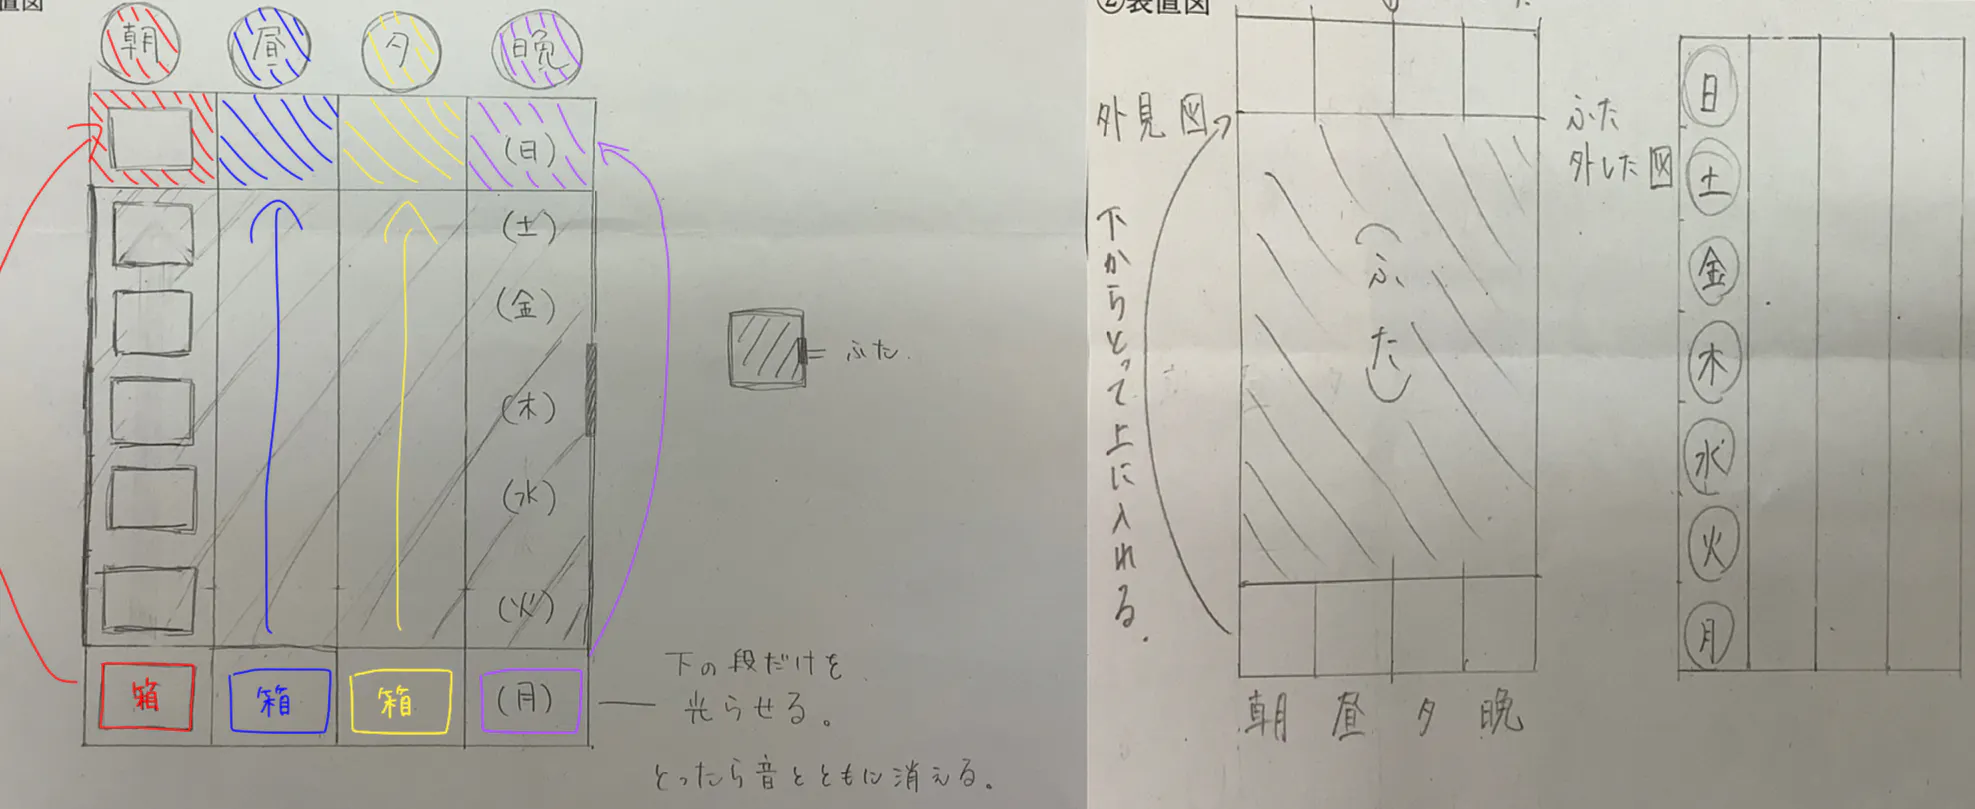 置図
朝 昼 夕 晩
(日)
(土)
(金)
(木)
(水)
(火)
箱 箱 箱 (月)
= ふた.
下の段だけを
光らせる。
とったら音とともに消える。
②装置図
外見図
下からとって上に入れる.
(ふた)
朝 昼 夕 晩
ふた
外した図
日
土
金
木
水
火
月